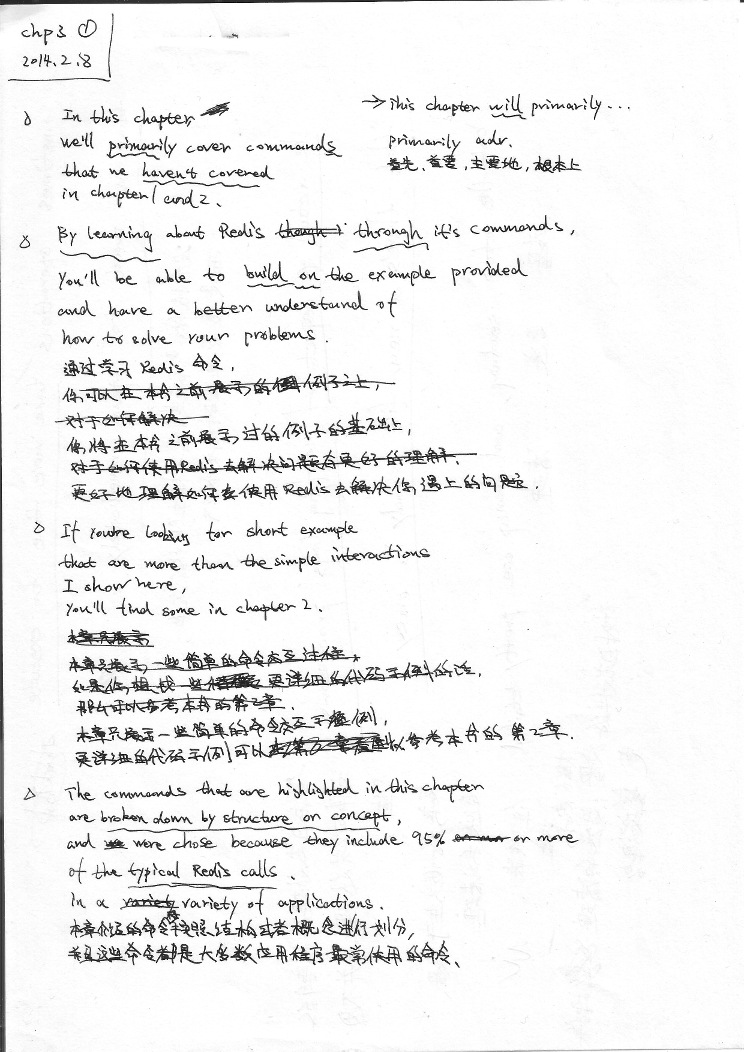 chp3 ①
2014.2.8
In this chapter,
we'll primarily cover commands
that we haven't covered
in chapter 1 and 2.
→ This chapter will primarily...
primarily adv.
首先、首要，主要地，根本上
By learning about Redis through it's commands,
You'll be able to build on the example provided
and have a better understand of
how to solve your problems.
通过学习 Redis 命令，
你可以在本书之前展示的例子之上，
对于如何解决
你将在本书之前展示过的例子的基础上，
对于如何使用Redis去解决问题有更好的理解．
更好地理解如何去使用Redis去解决你遇上的问题．
If you're looking for short example
that are more than the simple interactions
I show here,
You'll find some in chapter 2.
本章只展示
本章只展示一些简单的命令交互过程，
如果你想找一些更详细的代码示例的话，
那么可以参考本书的第2章．
本章只展示一些简单的命令交互示例，
更详细的代码示例可以参考本书的第2章．
The commands that are highlighted in this chapter
are broken down by structure or concept,
and were chose because they include 95% or more
of the typical Redis calls.
In a variety of applications.
本章介绍的命令会按照结构或者概念进行划分，
并且这些命令都是大多数应用程序最常使用的命令、